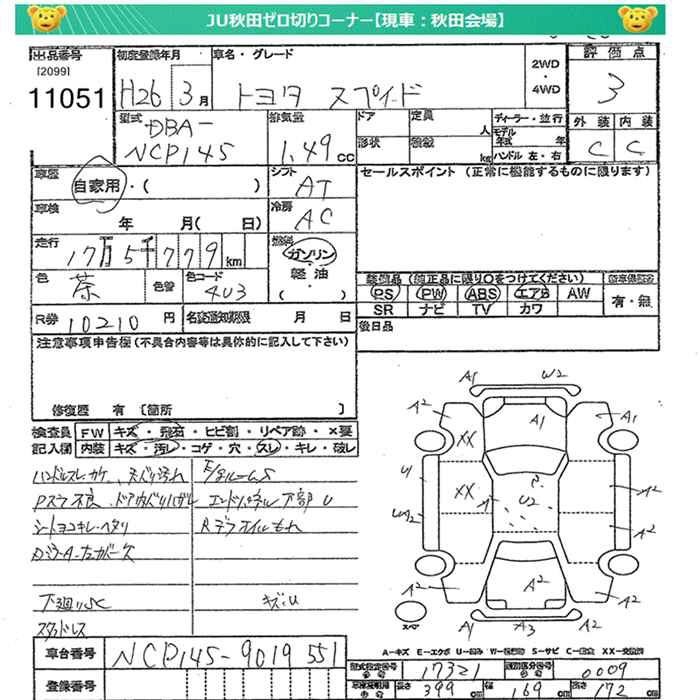 JU秋田ゼロ切りコーナー【現車：秋田会場】
出品番号 初度登録年月 車名・グレード 2WD・4WD 評価点
[2099]
11051 H26 3月 トヨタ スペイド 3
型式 排気量 ドア 定員 人 ディーラー・並行 外装 内装
DBA- NCP145 1.49 cc 形状 積載 kg モデル年式 年 ハンドル 左・右 C C
車歴 自家用・( ) シフト AT セールスポイント (正常に機能するものに限ります)
車検 年 月( 日) 冷房 AC
走行 17万5千779km 燃料 ガソリン・軽油・( )
色 茶 色替 色コード 4U3
装備品 (純正品に限り○をつけてください)
PS PW ABS エアB AW 有・無
SR ナビ TV カワ
R券 10210円 名変通知期限 月 日 後日品
注意事項申告欄 (不具合内容等は具体的に記入して下さい)
修復歴 有 [箇所 ]
検査員 FW キズ・飛石・ヒビ割・リペア跡・×要
記入欄 内装 キズ・汚レ・コゲ・穴・スレ・キレ・破レ
ハンドルスレ
エンドパネル下部U
シートヨコキレ・ヘタリ
下廻りSC キズ・U
スタッドレス
A1 W2
A2 A1 A1
XX
XX
U U2 A2
UA2 A2
A2 A2 A2
A1 A3 A2
スペア
A-キズ E-エクボ U-凹み S-サビ XX-交換済
車台番号 NCP145-9019551
登録番号
型式指定番号 17321 類別区分番号 0009
長さ 399cm 幅 169cm 高さ 172cm